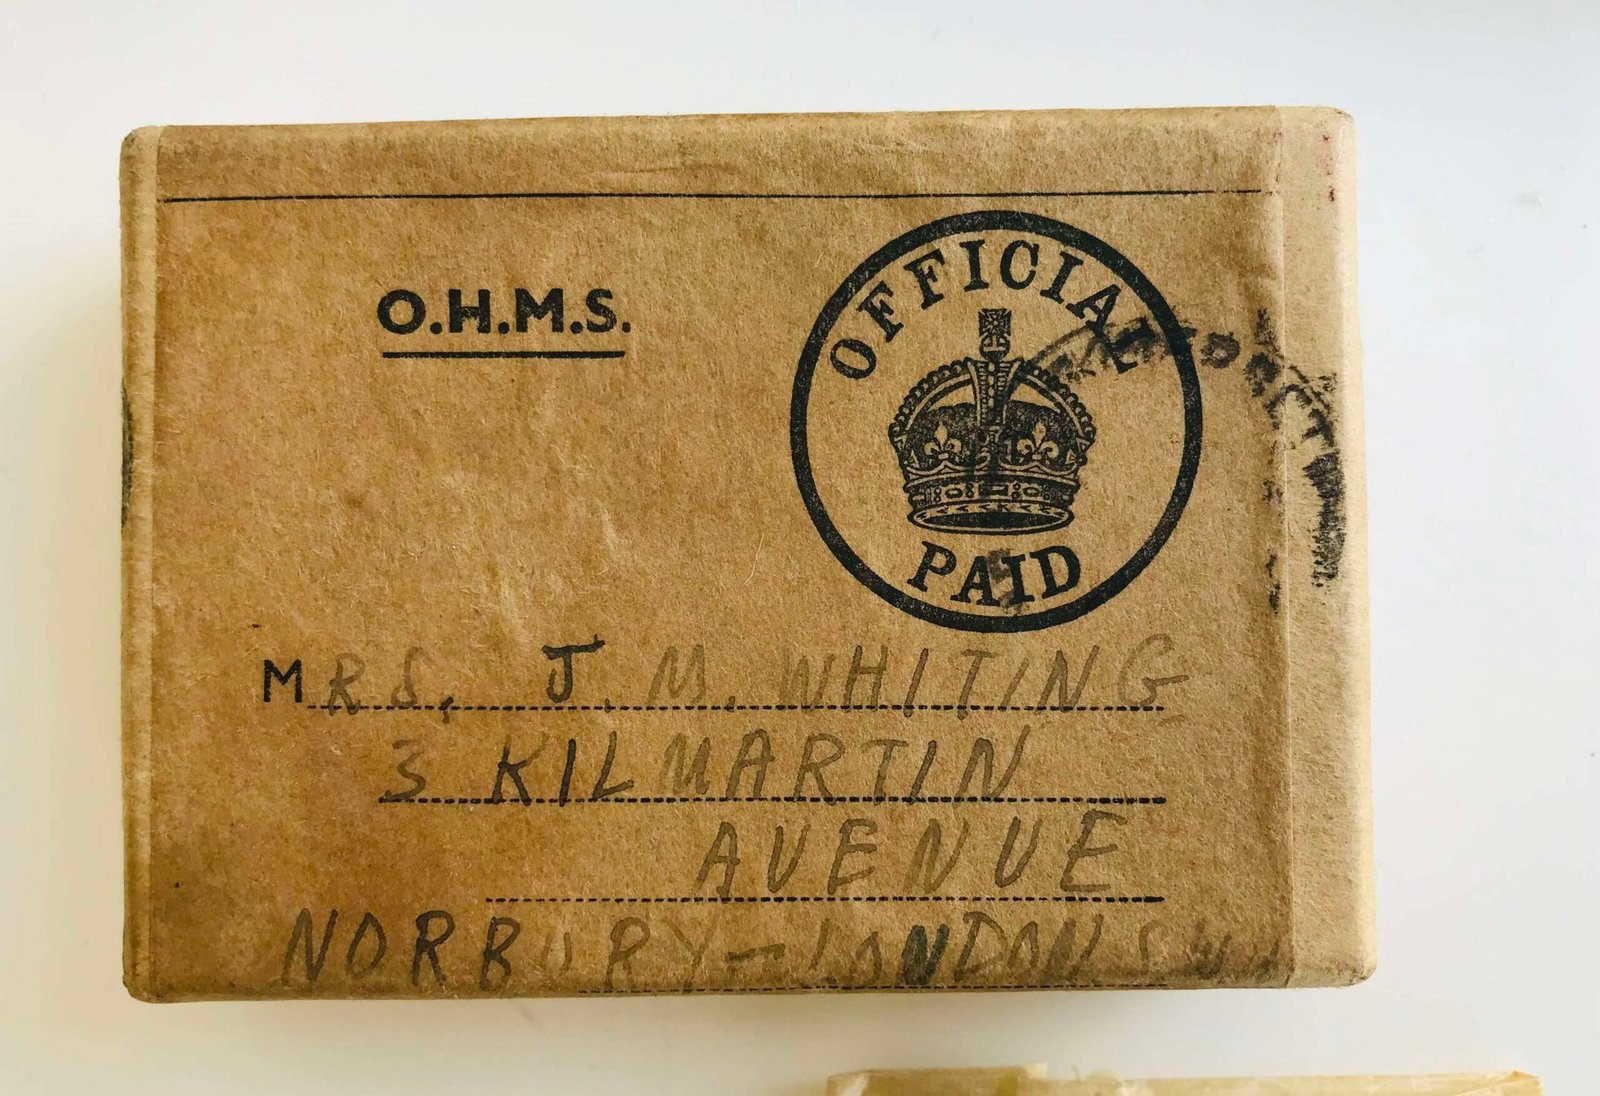 O.H.M.S.
OFFICIAL
PAID
MRS. J. M. WHITING
3 KILMARTIN
AVENUE
NORBURY - LONDON S W